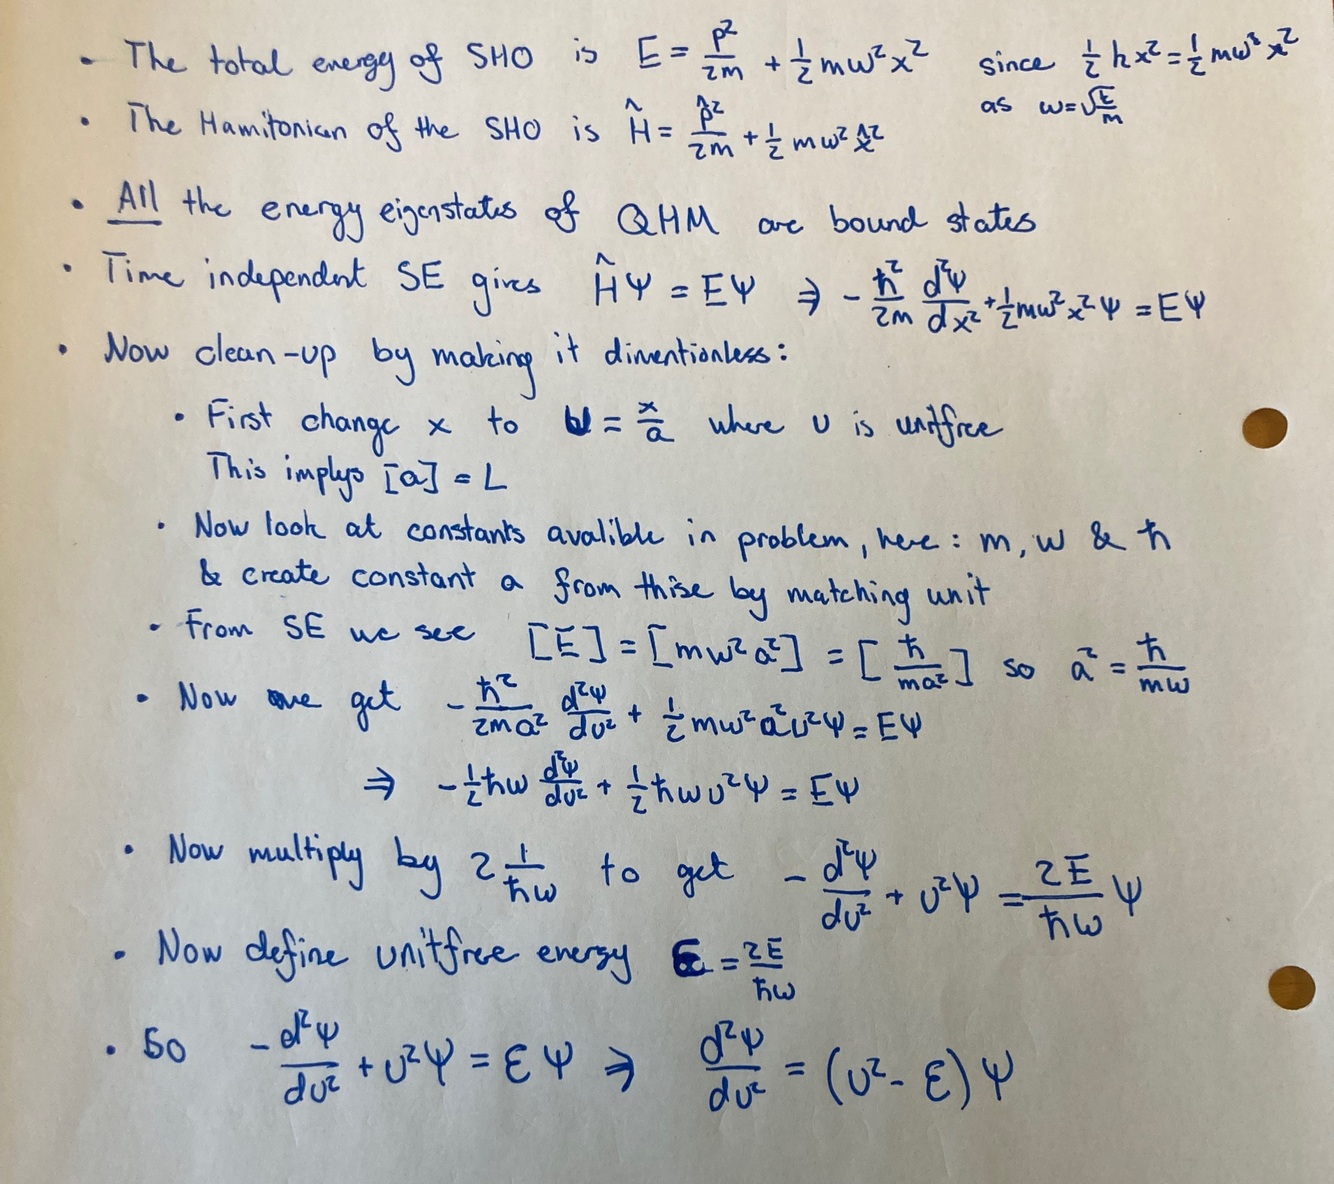 - The total energy of SHO is E = p²/2m + ½mω²x² since ½kx² = ½mω²x²
as ω = √(k/m)
• The Hamitonian of the SHO is Ĥ = p̂²/2m + ½mω²x̂²
• All the energy eigenstates of QHM are bound states
• Time independent SE gives ĤΨ = EΨ ⇒ -ħ²/2m d²Ψ/dx² + ½mω²x²Ψ = EΨ
• Now clean-up by making it dimentionless:
• First change x to u = x/a where u is unitfree
This implys [a] = L
• Now look at constants avalible in problem, here: m, ω & ħ
& create constant a from thise by matching unit
• From SE we see [E] = [mω²a²] = [ħ/ma²] so a² = ħ/mω
• Now we get -ħ²/2ma² d²Ψ/du² + ½mω²a²u²Ψ = EΨ
⇒ -½ħω d²Ψ/du² + ½ħωu²Ψ = EΨ
• Now multiply by 2 1/ħω to get -d²Ψ/du² + u²Ψ = 2E/ħω Ψ
• Now define unitfree energy ε = 2E/ħω
• So -d²Ψ/du² + u²Ψ = εΨ ⇒ d²Ψ/du² = (u² - ε)Ψ